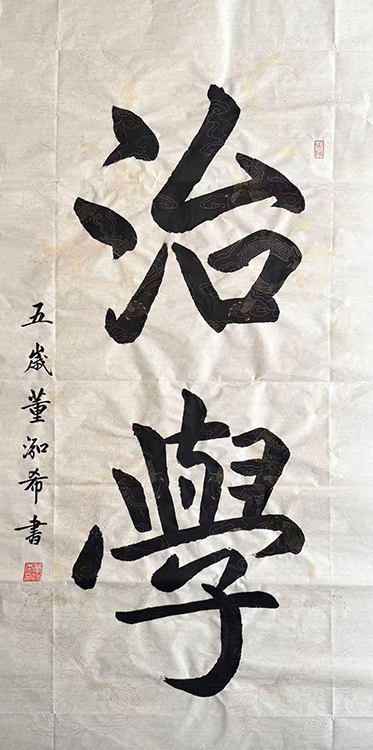 治學
五歲董泓希書